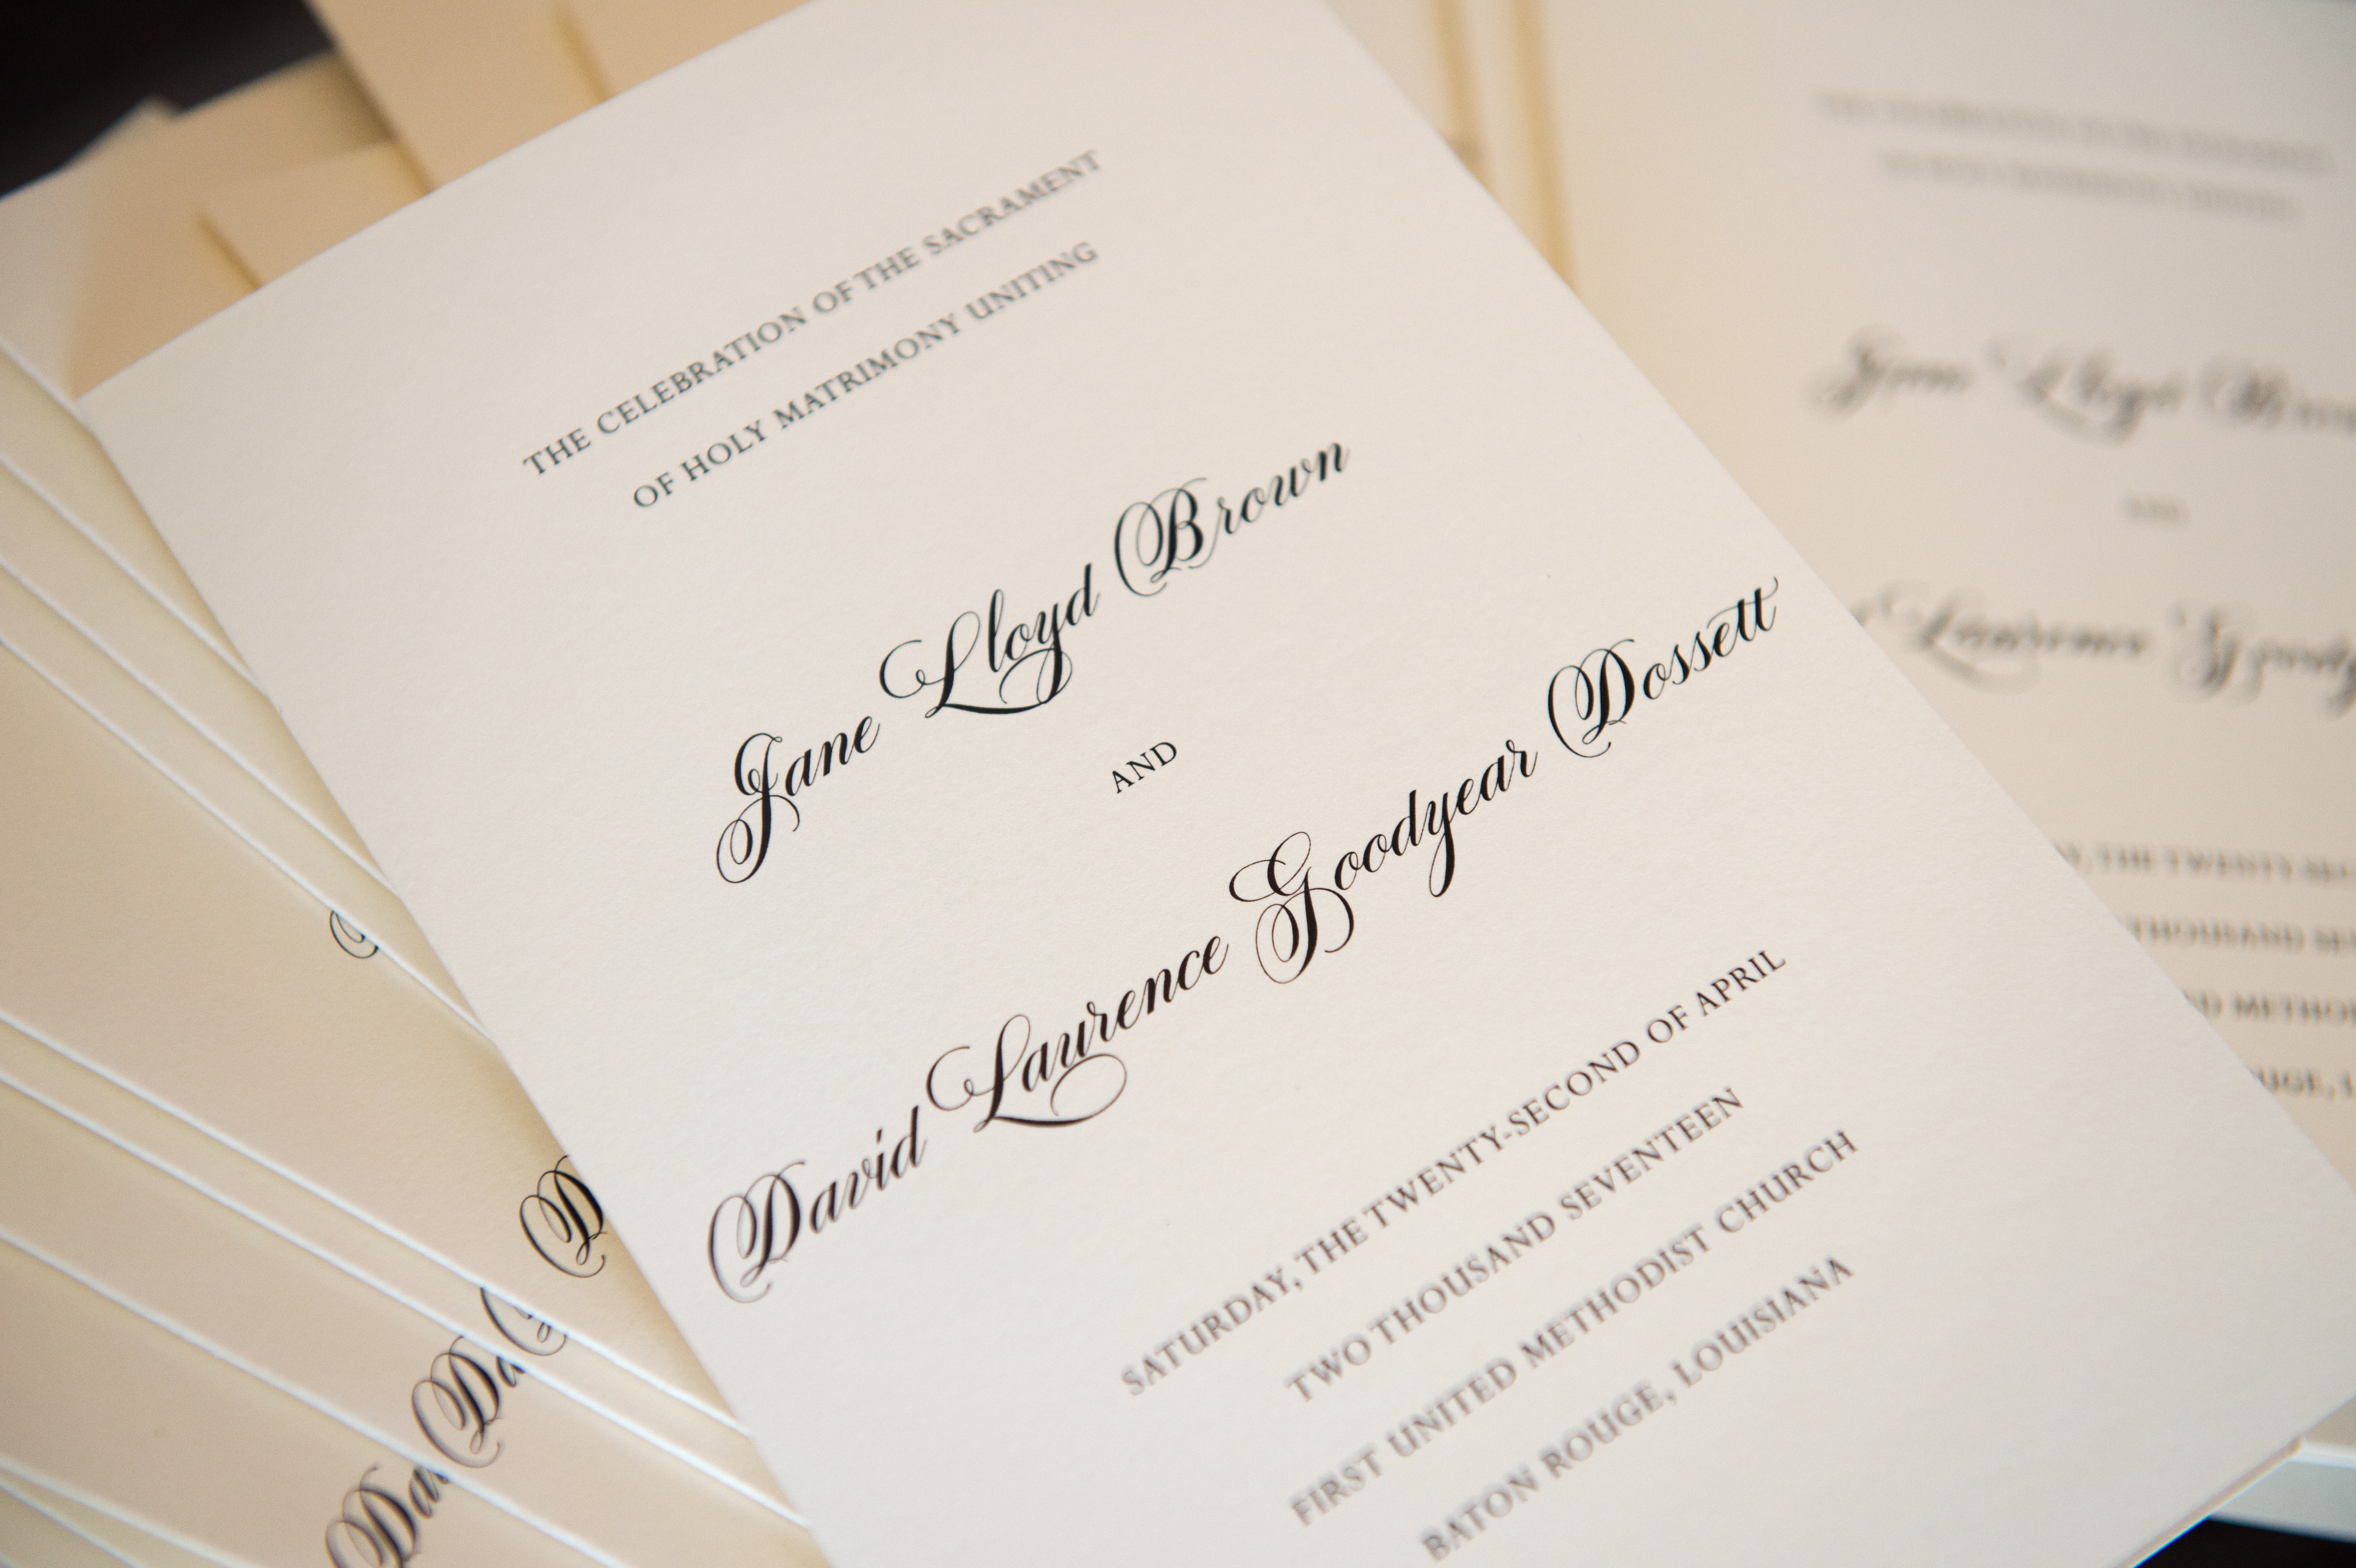 THE CELEBRATION OF THE SACRAMENT
OF HOLY MATRIMONY UNITING
Jane Lloyd Brown
AND
David Laurence Goodyear Dossett
SATURDAY, THE TWENTY-SECOND OF APRIL
TWO THOUSAND SEVENTEEN
FIRST UNITED METHODIST CHURCH
BATON ROUGE, LOUISIANA
Jane Lloyd
AND
Laurence
, THE TWENTY
THOUSAND